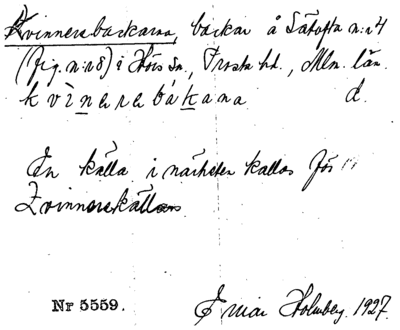 Kvinnersbackarna, backar å Sätofta n:r 4
(fig. n:r 8) i Hörs sn, Frosta hd., Mlm. län.
kvìnerebákana d.
En källa i närheten kallas för
Kvinnerskällan
Nr 5559. Einar Holmberg. 1927.